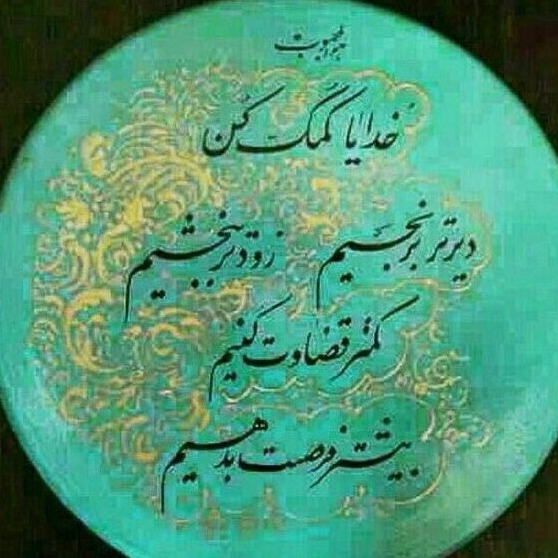 هو المحبوب
خدایا کمک کن
دیرتر برنجیم زودتر ببخشیم
کمتر قضاوت کنیم
بیشتر فرصت بدهیم